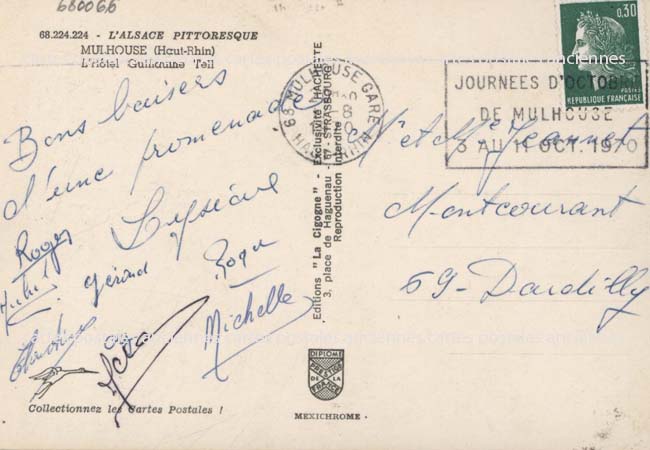 680066
68.224.224 - L'ALSACE PITTORESQUE
MULHOUSE (Haut-Rhin)
L'Hôtel Guillaume Tell
Bons baisers
d'une promenade
Roger
Gérard
Roger
Michelle
Collectionnez les Cartes Postales !
Editions "La Cigogne" - Exclusivité HACHETTE
3, place de Haguenau - 67 - STRASBOURG
Reproduction interdite
DIPLOME
PRESTIGE
DE LA
FRANCE
MEXICHROME
68 MULHOUSE GARE
HAUT-RHIN
JOURNEES D'OCTOBRE
DE MULHOUSE
3 AU 11 OCT. 1970
0,30
POSTES
REPUBLIQUE FRANÇAISE
Mr et Me Jeannet
Montcourant
69-Dardilly